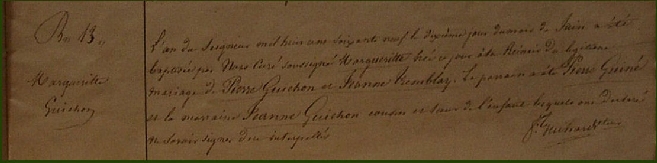 B. 13.
Marguerite
Guichon
L'an du Seigneur mil huit cent soixante neuf le dixième jour du mois de Juin a été
baptisée par Nous Curé soussigné Marguerite née ce jour du légitime
mariage de Pierre Guichon et Jeanne Tremblay. Le parrain a été Pierre
et la marraine Jeanne Guichon cousin et sœur de l'enfant lesquels ont déclaré
ne savoir signer de ce interpellés